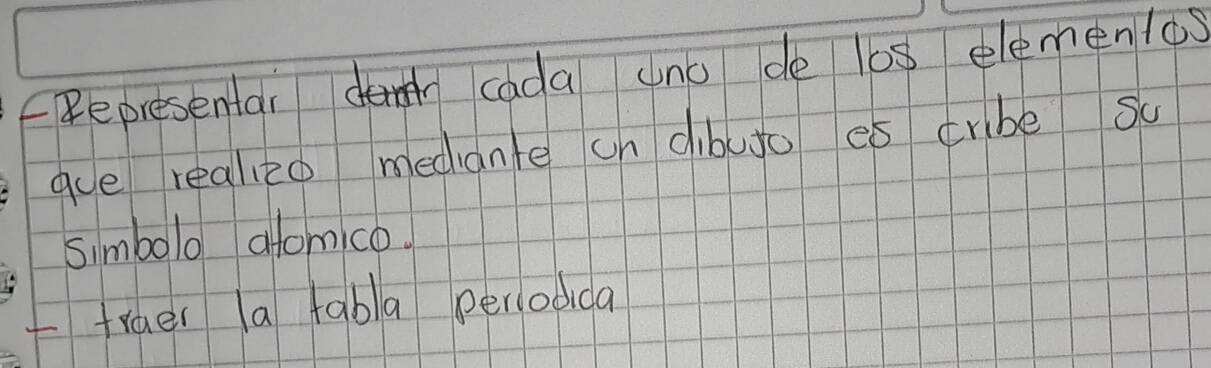 - Representar cada uno de los elementos
que realizo mediante un dibujo es cribe su
simbolo atomico.
- traer la tabla periodica